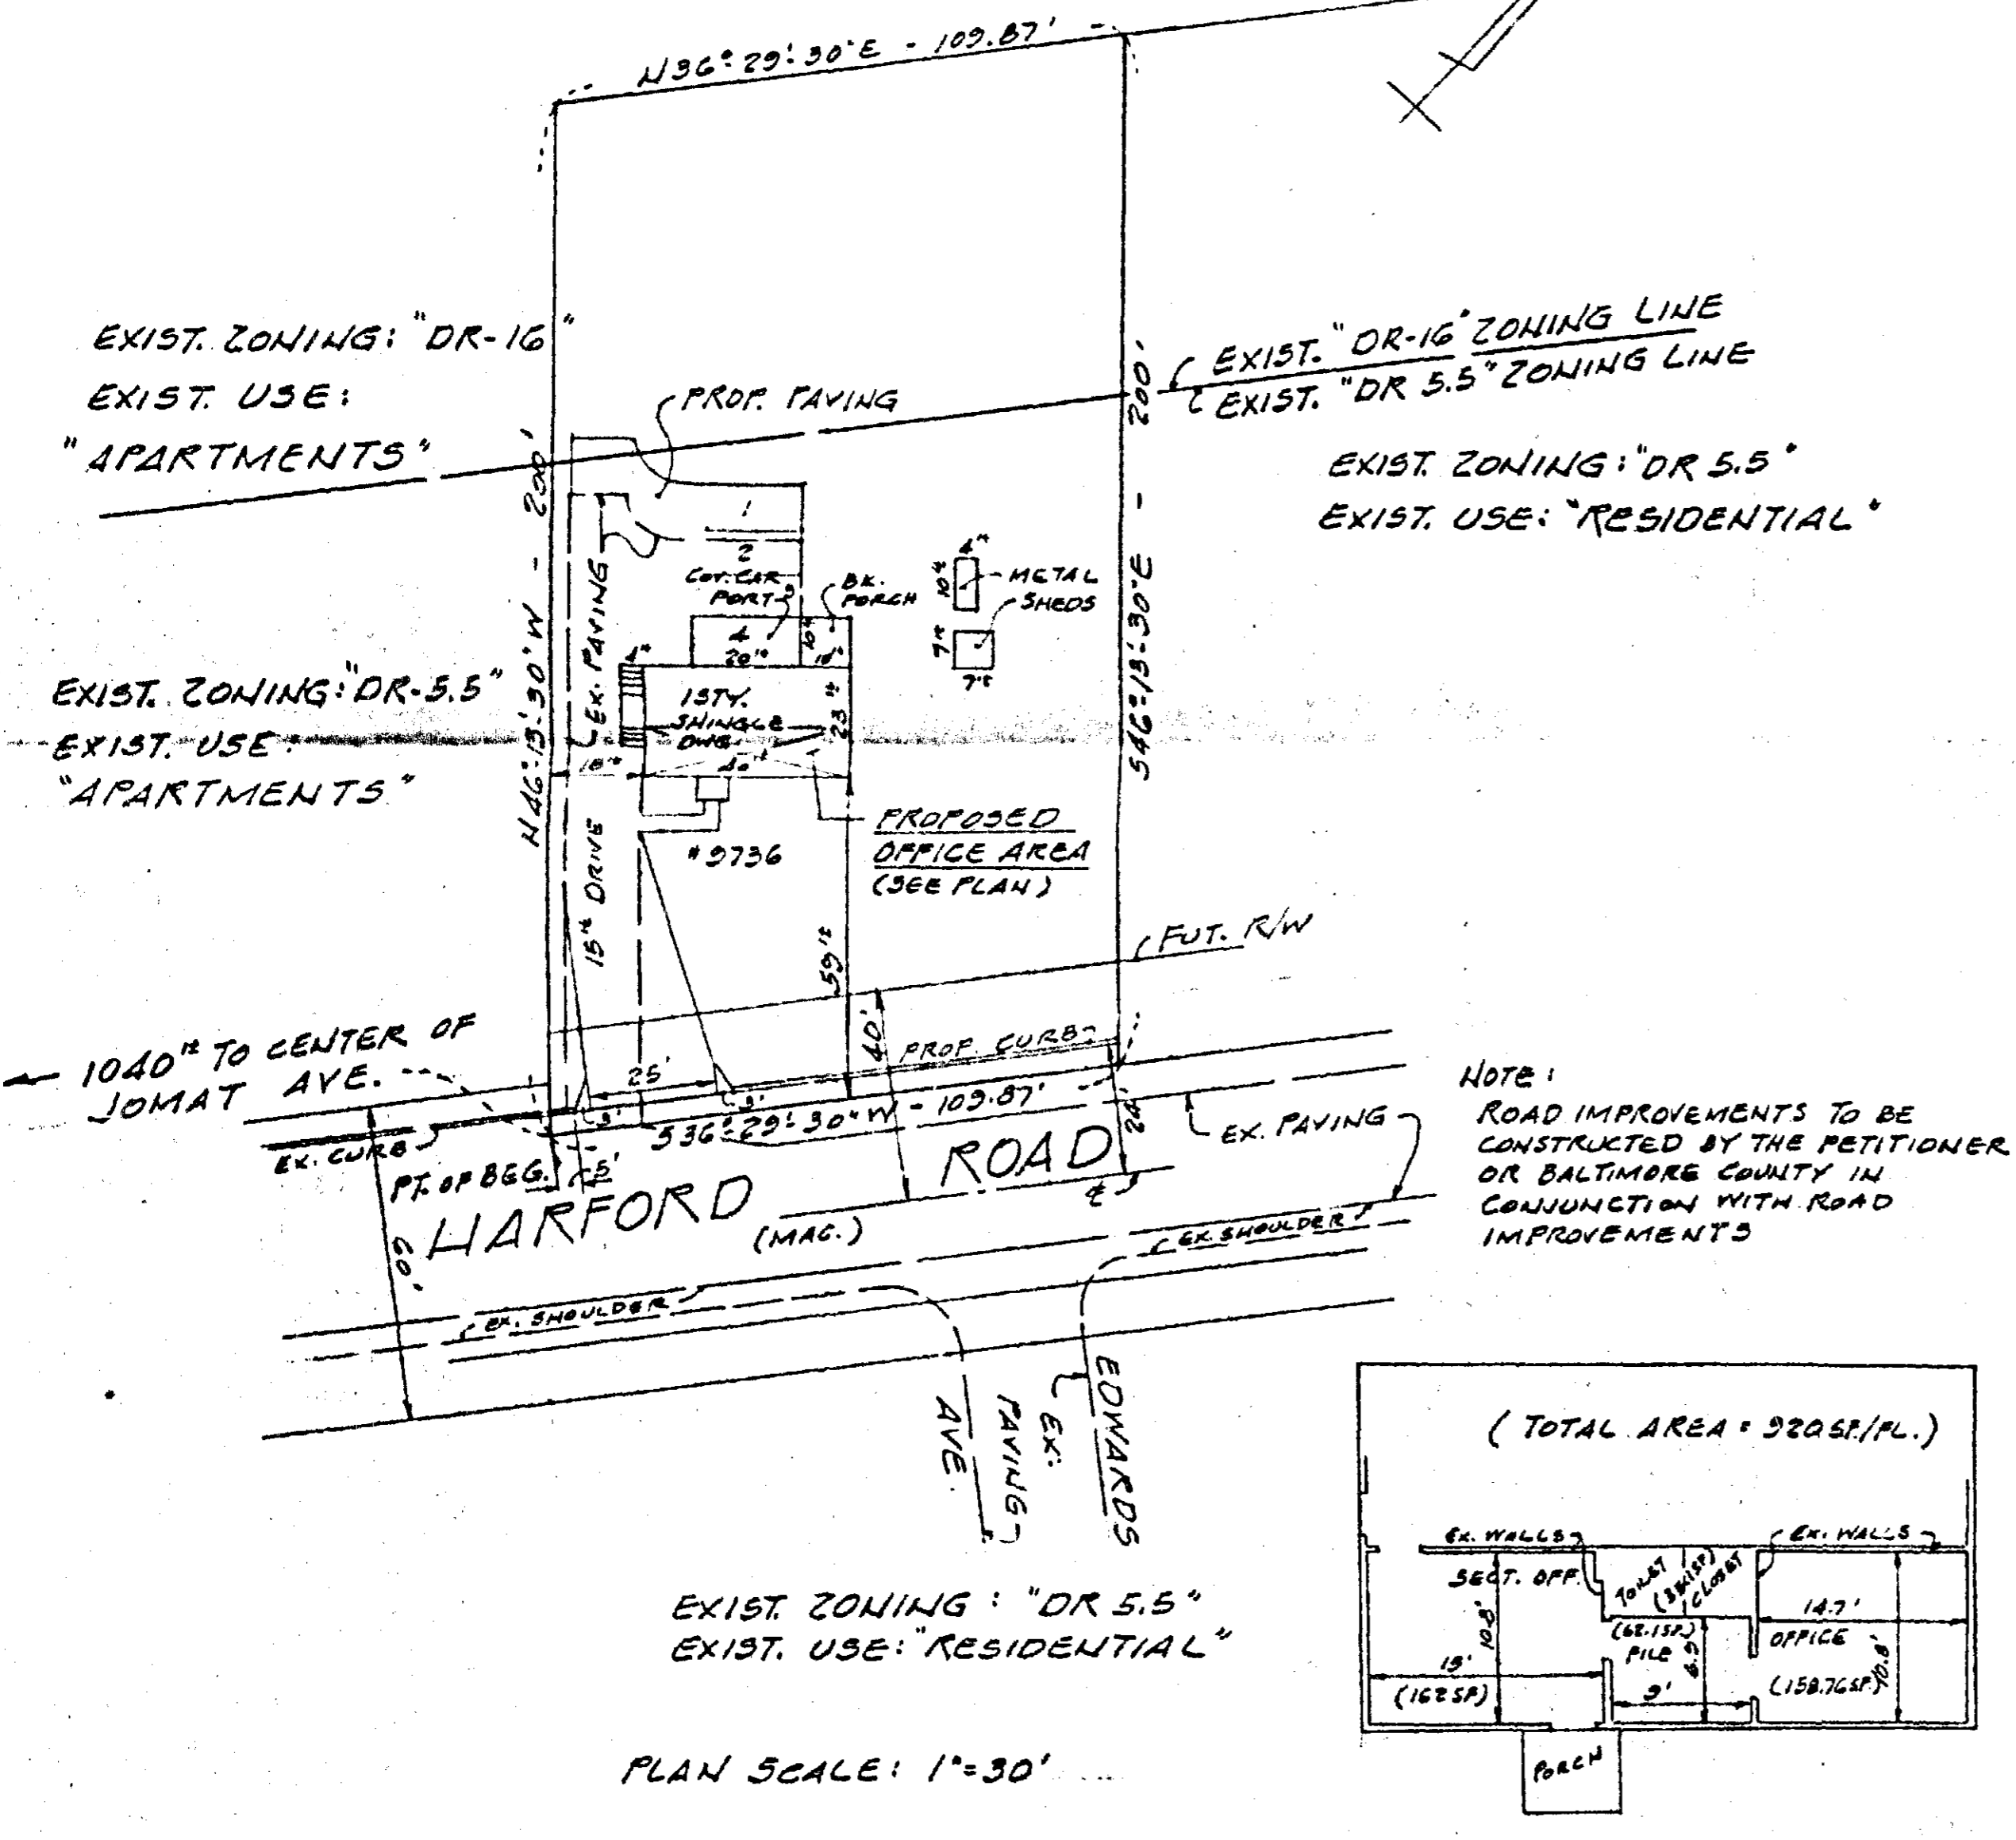 N36°-29'-30"E - 109.87'
EXIST. ZONING: "DR-16"
EXIST. USE:
"APARTMENTS"
EXIST. "DR-16" ZONING LINE
EXIST. "DR 5.5" ZONING LINE
PROP. PAVING
EXIST. ZONING: "DR 5.5"
EXIST. USE: "RESIDENTIAL"
N46°-13'-30"W - 200'
S46°-13'-30"E - 200'
1
2
COV. CAR
PORT
BK.
PORCH
4
20'±
10'±
10'±
4'±
10'±
METAL
SHEDS
7'±
7'±
EX. PAVING
4'±
1 STY.
SHINGLE
DWG.
23'±
18'±
40'±
EXIST. ZONING: "DR-5.5"
EXIST. USE:
"APARTMENTS"
PROPOSED
OFFICE AREA
(SEE PLAN)
#9736
15'± DRIVE
59'±
FUT. R/W
40'
PROP. CURB
1040'± TO CENTER OF
JOMAT AVE.
25'
3'
3'
S36°-29'-30"W - 109.87'
24'
EX. CURB
PT. OF BEG.
5'
EX. PAVING
HARFORD ROAD
(MAC.)
60'
EX. SHOULDER
EX. SHOULDER
EDWARDS
AVE.
EX.
PAVING
NOTE:
ROAD IMPROVEMENTS TO BE
CONSTRUCTED BY THE PETITIONER
OR BALTIMORE COUNTY IN
CONJUNCTION WITH ROAD
IMPROVEMENTS
EXIST. ZONING: "DR 5.5"
EXIST. USE: "RESIDENTIAL"
PLAN SCALE: 1"=30'
(TOTAL AREA = 920 SF/FL.)
EX. WALLS
EX. WALLS
SECT. OFF.
TOILET
CLOSET
10.8'
15'
(162 SF)
(62.1 SF.)
FILE
6.9'
9'
14.7'
OFFICE
(158.76 SF.)
10.8'
PORCH